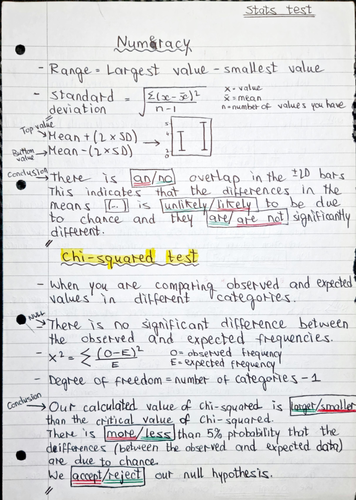 Stats test
Numeracy
- Range = Largest value - smallest value
- Standard deviation = √ Σ(x - x̄)² / n - 1
x = value
x̄ = mean
n = number of values you have
Top value → Mean + (2 x SD)
Bottom value → Mean - (2 x SD)
Conclusion → There is an/no overlap in the bars
This indicates that the differences in the
means [...] is unlikely/likely to be due
to chance and they are/are not significantly
different.
Chi-squared test
- When you are comparing observed and expected
values in different categories.
NULL → There is no significant difference between
the observed and expected frequencies.
- X² = Σ (O-E)² / E
O = observed frequency
E = expected frequency
- Degree of freedom = number of categories - 1
Conclusion → Our calculated value of Chi-squared is larger/smaller
than the critical value of Chi-squared.
There is more/less than 5% probability that the
differences (between the observed and expected data)
are due to chance.
We accept/reject our null hypothesis.